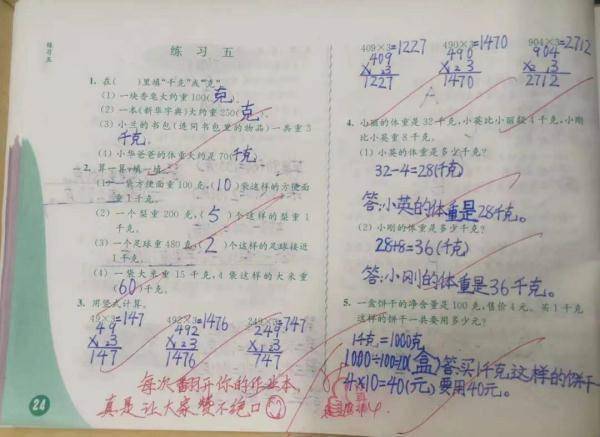 练习五
练 习 五
1. 在( )里填“千克”或“克”。
(1) 一块香皂大约重100(克)。
(2) 一本《新华字典》大约重250(克)。
(3) 小兰的书包(连同书包里的物品)一共重3
(千克)。
(4) 小华爸爸的体重大约是70(千克)。
2. 算一算,填一填。
(1) 一袋方便面重100克,(10)袋这样的方便面
重1千克。
(2) 一个梨重200克,(5)个这样的梨重1
千克。
(3) 一个足球重480克,(2)个这样的足球接近
1千克。
(4) 一袋大米重15千克,4袋这样的大米重
(60)千克。
3. 用竖式计算。
49×3=147 492×3=1476 249×3=747
49 492 249
×23 ×23 ×23
147 1476 747
每次翻开你的作业本,
真是让大家赞不绝口
24
409×3=1227 490×3=1470 904×3=2712
409 490 904
×23 ×23 ×23
1227 1470 2712
4. 小丽的体重是32千克,小英比小丽轻4千克,小刚
比小英重8千克。
(1) 小英的体重是多少千克?
32-4=28(千克)
答:小英的体重是28千克。
(2) 小刚的体重是多少千克?
28+8=36(千克)
答:小刚的体重是36千克。
5. 一盒饼干的净含量是100克,售价4元。买1千克
这样的饼干一共要用多少元?
1千克=1000克
1000÷100=10(盒) 答:买1千克这样的饼干一
4×10=40(元) 要用40元。